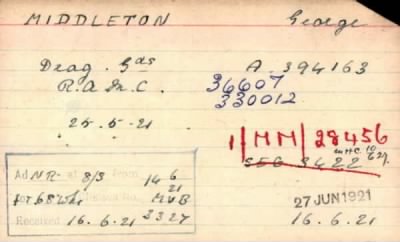 MIDDLETON George
Drag. Gds A. 394163
R.A.M.C. 36607
330012
25.5.21
1/MM/28456
SEG 3422
Ad NR at 8/3 from 14 6/21
for 68
Received 16.6.21 3327
27 JUN 1921
16.6.21